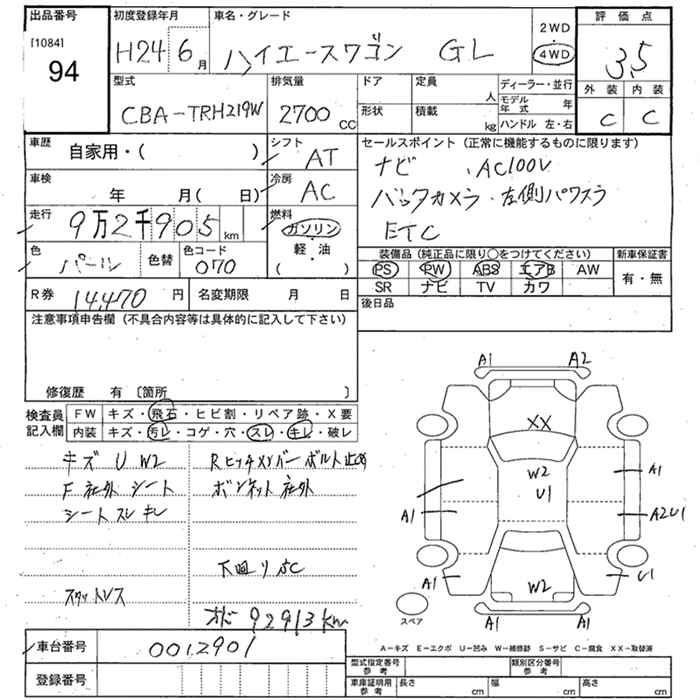 出品番号
[1084]
94
初度登録年月
H24 6月
車名・グレード
ハイエースワゴン GL
2WD
4WD
評価点
3.5
外装 内装
C C
型式
CBA-TRH219W
排気量
2700 CC
ドア
形状
定員
人
積載
kg
ディーラー・並行
モデル年式 年
ハンドル 左・右
車歴
自家用・( )
シフト
AT
車検
年 月( 日)
冷房
AC
走行
9万2千905 km
燃料
ガソリン
軽・油
( )
色
パール
色替
色コード
070
R券
14,470 円
名変期限 月 日
セールスポイント(正常に機能するものに限ります)
ナビ ・AC100V
バックカメラ・左側パワスラ
ETC
装備品(純正品に限り○をつけてください)
PS PW ABS エアB AW
SR ナビ TV カワ
新車保証書
有・無
後日品
注意事項申告欄(不具合内容等は具体的に記入して下さい)
修復歴 有〔箇所 〕
検査員記入欄
FW キズ・飛石・ヒビ割・リペア跡・X要
内装 キズ・汚レ・コゲ・穴・スレ・キレ・破レ
キズ U W2
F社外シート
シートスレキレ
スタットレス
Rピッチメンバーボルト止め
ボンネット社外
下回りSC
オド 92913km
A1 A2
XX
W2
U1
A1
A1
A2U1
A1
W2
U1
A1 A1
スペア
A-キズ E-エクボ U-凹み W-補修跡 S-サビ C-腐食 XX-取替済
車台番号
0012901
登録番号
型式指定番号
参考
類別区分番号
参考
車庫証明用
参考
長さ cm
幅 cm
高さ cm